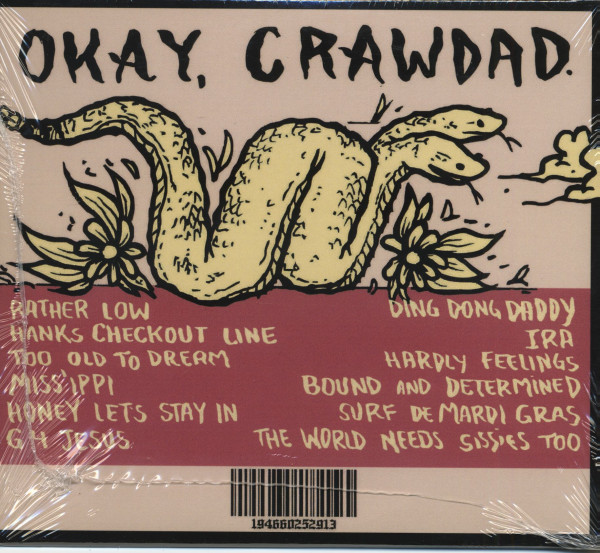 OKAY, CRAWDAD.
RATHER LOW
HANKS CHECKOUT LINE
TOO OLD TO DREAM
MISS'IPPI
HONEY LETS STAY IN
GH JESUS
DING DONG DADDY
IRA
HARDLY FEELINGS
BOUND AND DETERMINED
SURF DE MARDI GRAS
THE WORLD NEEDS SISSIES TOO
194660252913